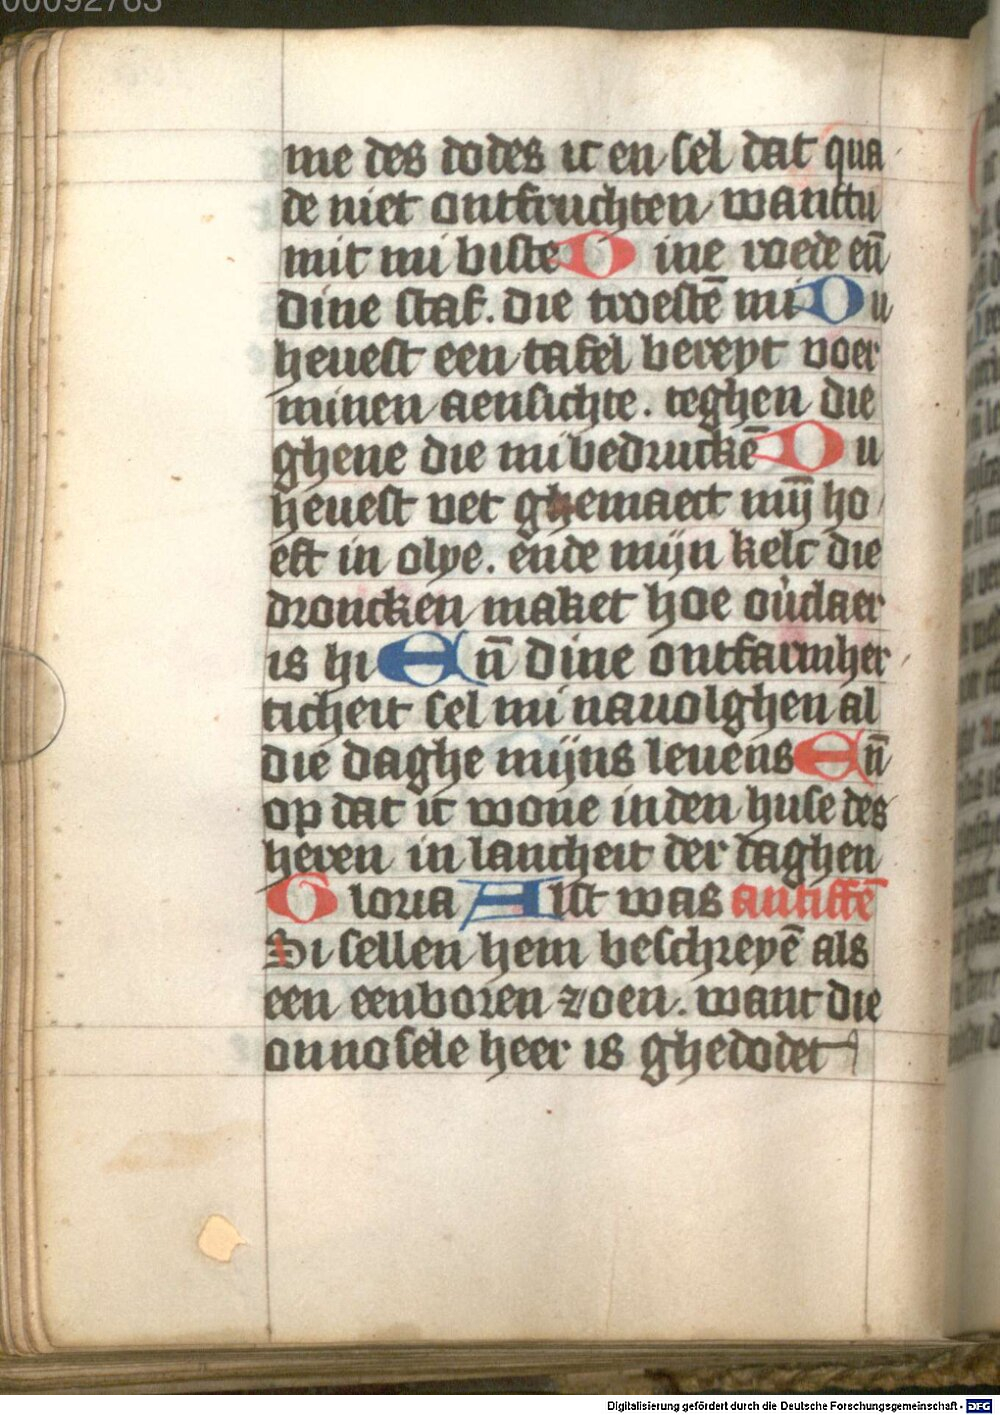 00092763
me des dodes ic en sel dat qua
de niet ontfruchten wanttu
mit mi biste Dine roede en̄
dine staf. die troestē mi Du
heuest een tafel bereyt voer
minen aensichte. teghen die
ghene die mi bedruckē Du
heuest vet ghemaect mȳ ho
eft in olye. ende mijn kelc die
droncken maket hoe ouclaer
is hi En̄ dine ontfarmher
ticheit sel mi nauolghen al
die daghe mijns leuens En̄
op dat ic wone inden huse des
heren in lancheit der daghen
Gloria Alst was antiffē
Si sellen hem beschreyē als
een eenboren zoen. want die
onnosele heer is ghedodet
Digitalisierung gefördert durch die Deutsche Forschungsgemeinschaft - DFG